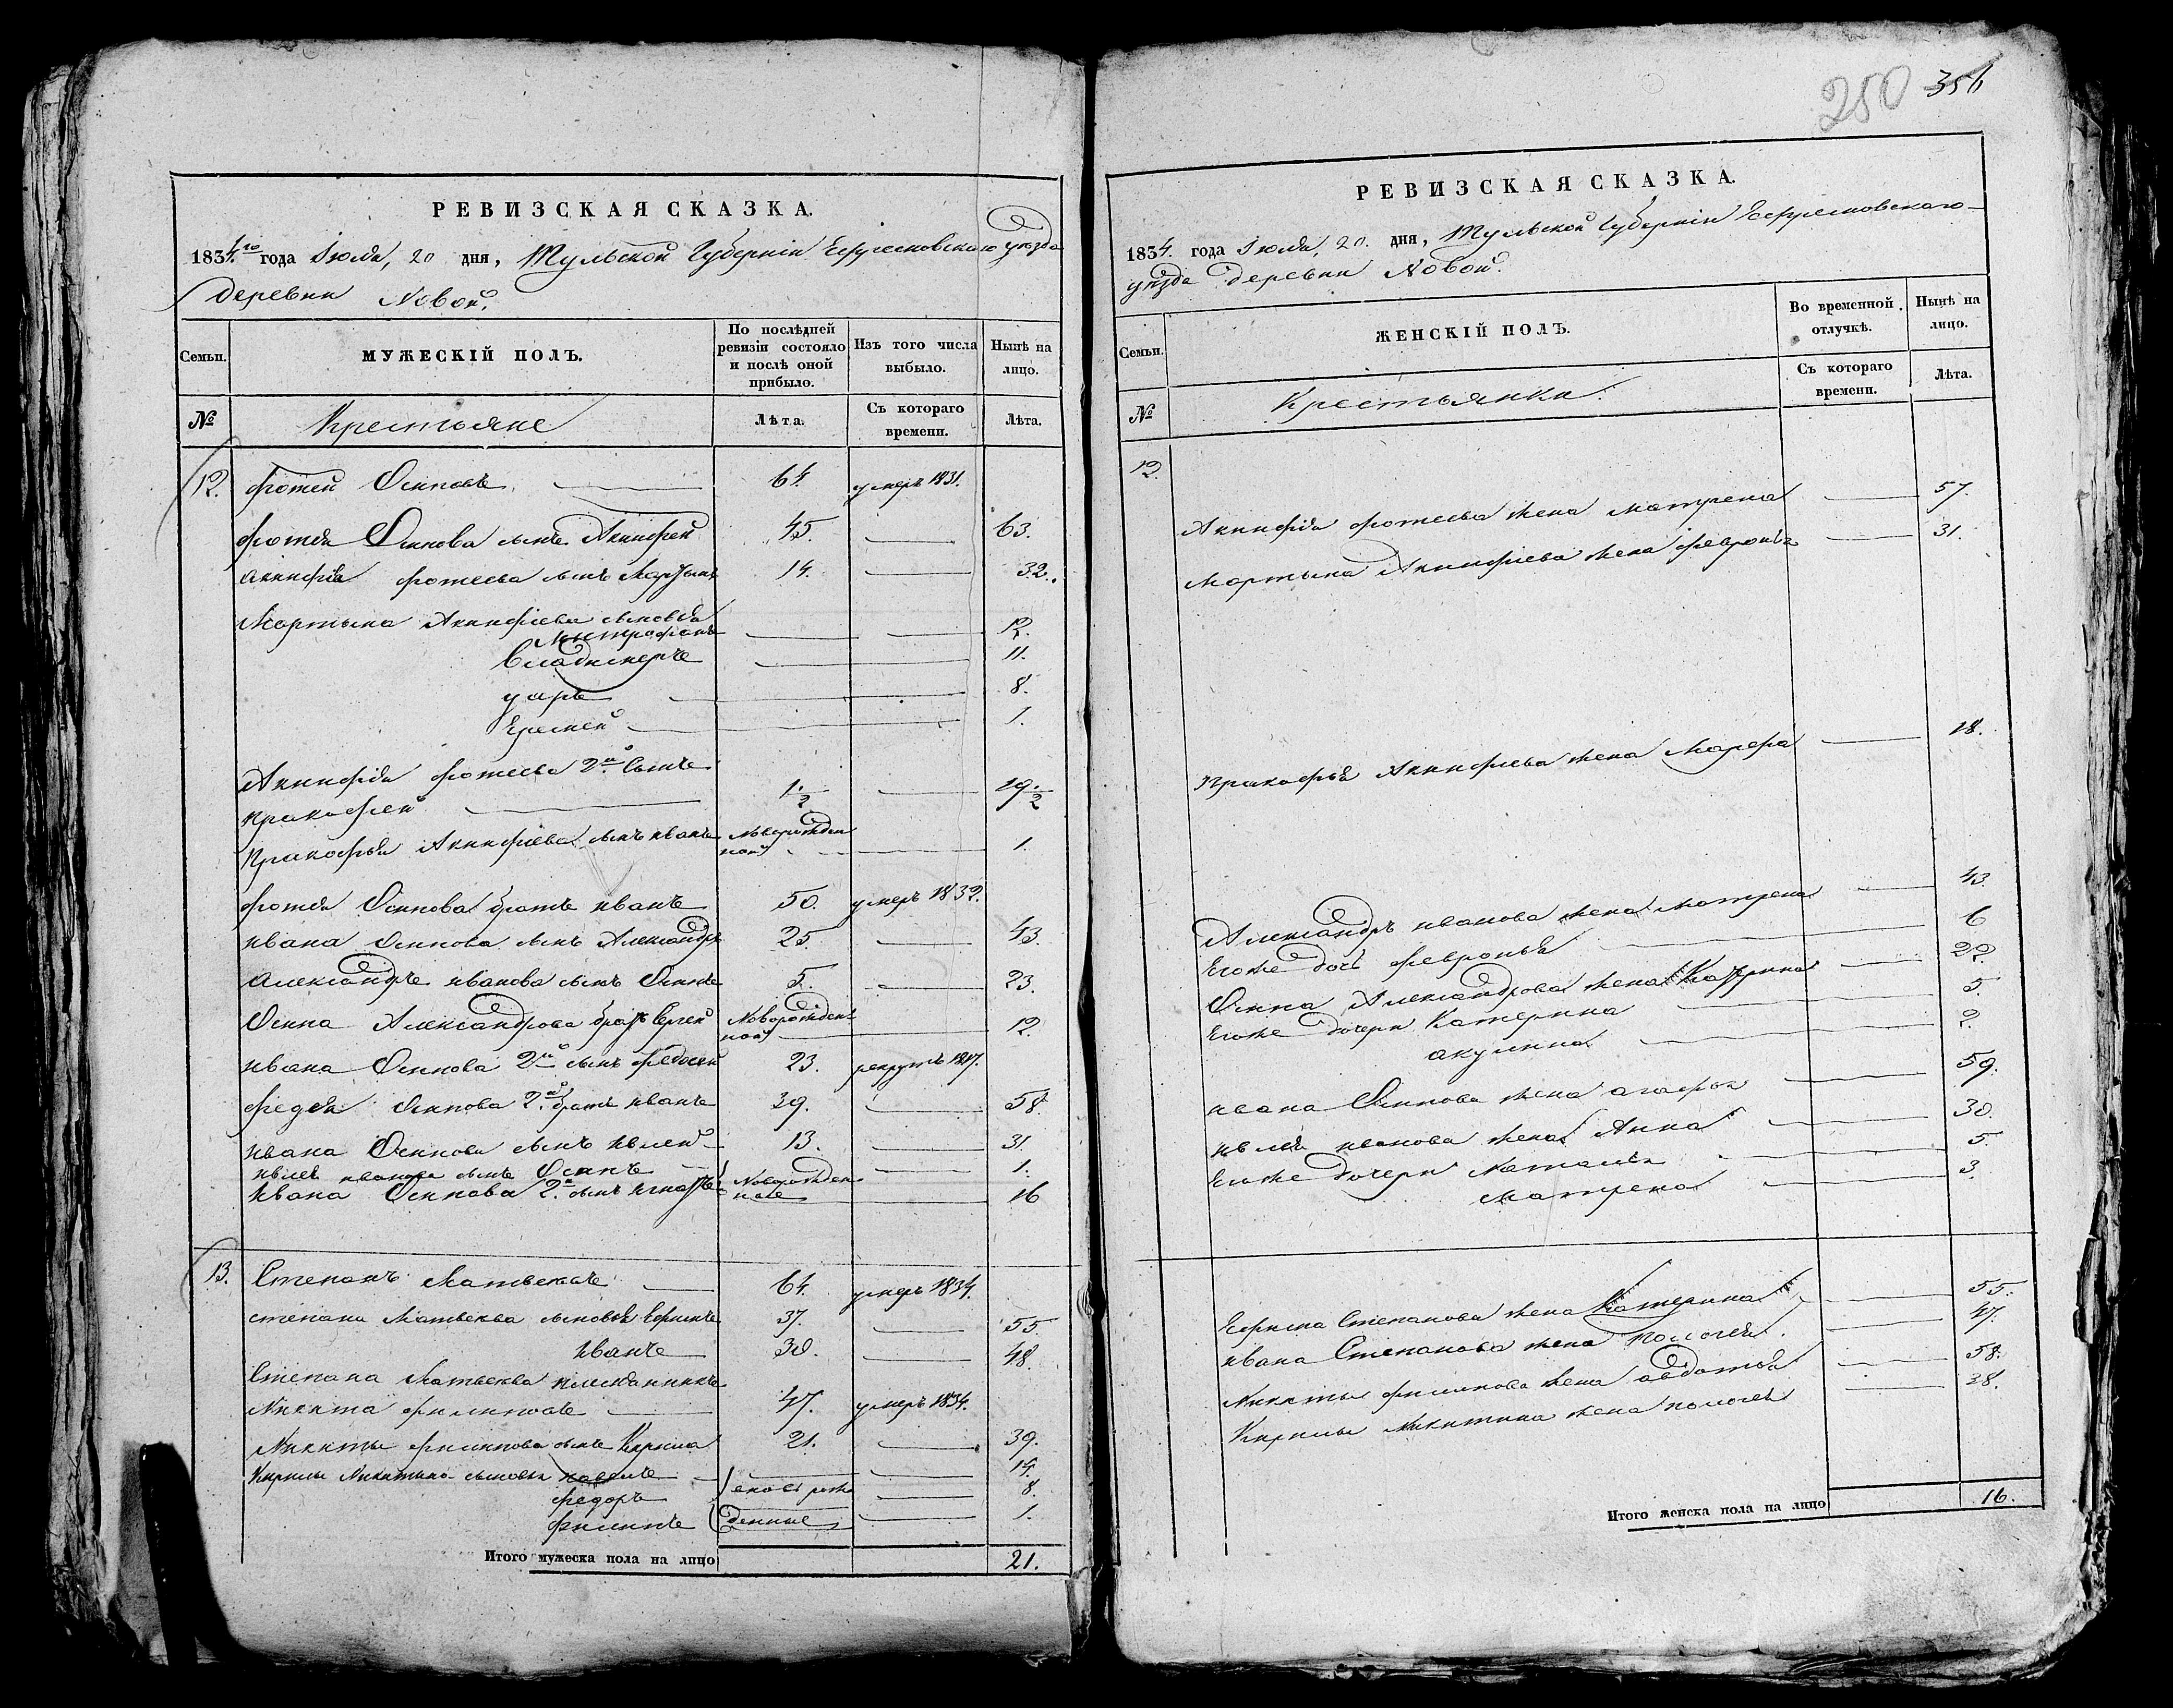 250 356
РЕВИЗСКАЯ СКАЗКА.
1834.го года Июля, 20 дня, Тульской Губернiи Ефремовского уезда
Деревни Новой.
Семьи.
МУЖЕСКIЙ ПОЛЪ.
По послѣдней ревизiи состояло и послѣ оной прибыло.
Изъ того числа выбыло.
Нынѣ на лицо.
№
Крестьяне
Лѣта.
Съ котораго времени.
Лѣта.
12. Фотей Осиповъ 64. умеръ 1831.
Фотея Осипова сынъ Акинфей 45. 63.
Акинфiя Фотеева сынъ Мартынъ 14. 32.
Мартына Акинфiева сыновья
Митрофанъ 12.
Владимеръ 11.
уаръ 8.
Еремей 1.
Акинфiя Фотеева 2й Сынъ
Пракофей 1.½ 19.½
Пракофья Акинфiева сынъ иванъ Новорожден
ной 1.
Фотея Осипова братъ иванъ 50. умеръ 1832.
ивана Осипова сынъ Александръ 25. 43.
Александръ иванова сынъ Осипъ 5. 23.
Осипа Александрова братъ Сергей Новорожден
ной 12.
ивана Осипова 2й сынъ Федосей 23. рекрутъ 1817.
Осипова 2й братъ иванъ 39. 58.
ивана Осипова сынъ ивлей 13. 31.
ивлея иванова сынъ Осипъ 1.
ивана Осипова 2й сынъ игнатъ Новорожден
ные 16
13. Степанъ Матвеевъ 64. умеръ 1834.
степана Матвеева сыновья Ефимъ 37. 55.
Иванъ 30. 48.
Степана Матвеева племянникъ
Никита филиповъ 47. умеръ 1834.
Никиты филипова сынъ Кирила 21. 39.
Кирилы Никитина сыновья павелъ 14.
федоръ 8.
филипъ денные 1.
Итого мужеска пола на лицо 21.
РЕВИЗСКАЯ СКАЗКА.
1834. года Июля, 20. дня, Тульской Губернiи Ефремовского
уезда Деревни Новой.
Семьи.
ЖЕНСКIЙ ПОЛЪ.
Во временной отлучкѣ.
Нынѣ на лицо.
№
Крестьянки.
Съ котораго времени.
Лѣта.
12.
Акинфiя Фотеева жена матрена 57.
Мартына Акинфiева жена февронья 31.
Пракофья Акинфиева жена Марфа 18.
Александръ иванова жена матрена 43.
Егоже дочь февронья 6
Осипа Александрова жена Катерина 22.
Егоже дочери Катерина 5.
акулина 2.
ивана Осипова жена агафья 59.
ивлея иванова жена Анна 30.
Егоже дочери Наталья 5.
матрена 3.
Ефима Степанова жена Катерина 55.
ивана Степанова жена пологея 47.
Никиты филипова жена авдотья 58.
Кирилы Никитина жена пологея 38.
Итого женска пола на лицо 16.